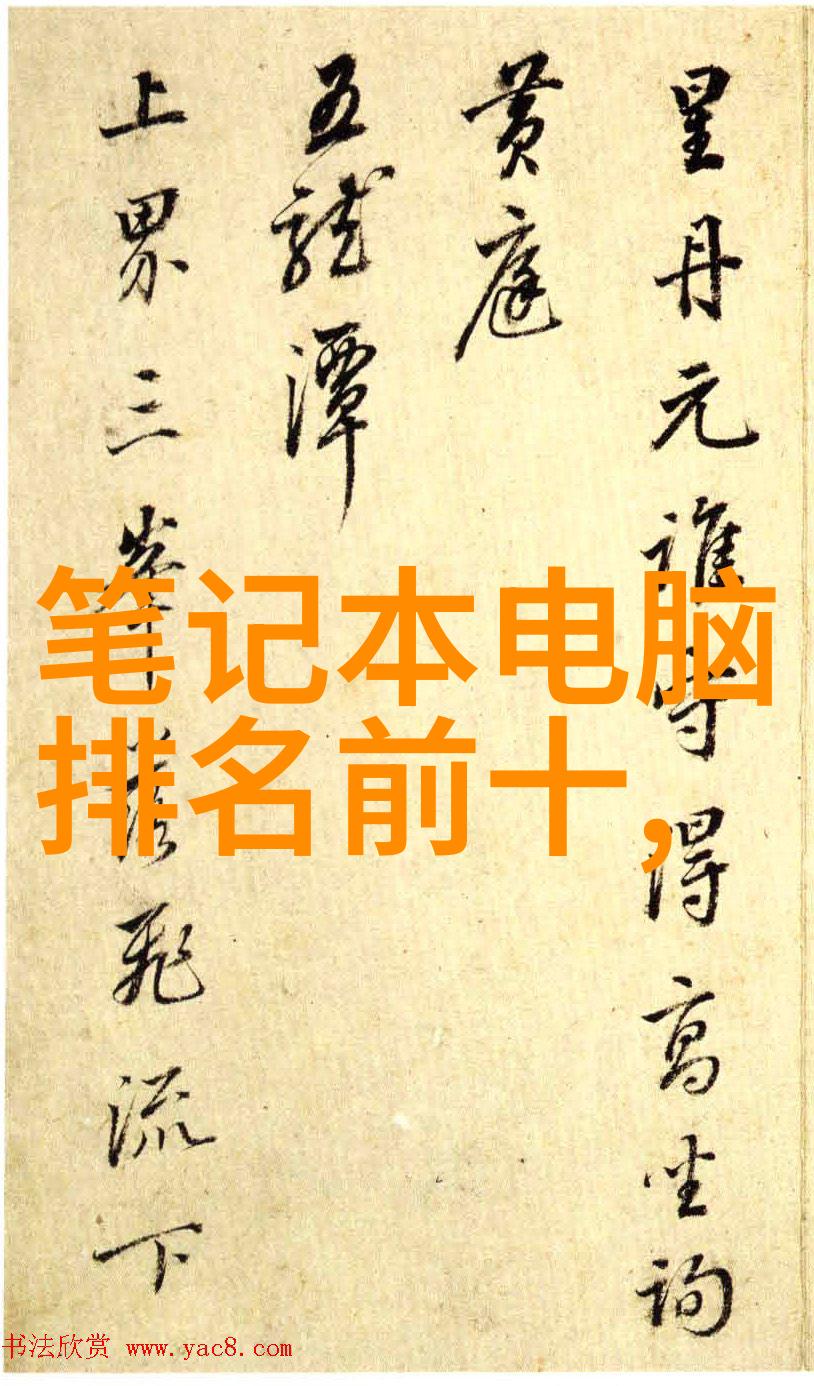 星丹元誰得高坐詢
黄庭
五龍潭
上界三峯飛流下
笔记本电脑
排名前十,
书法欣赏 www.yac8.com